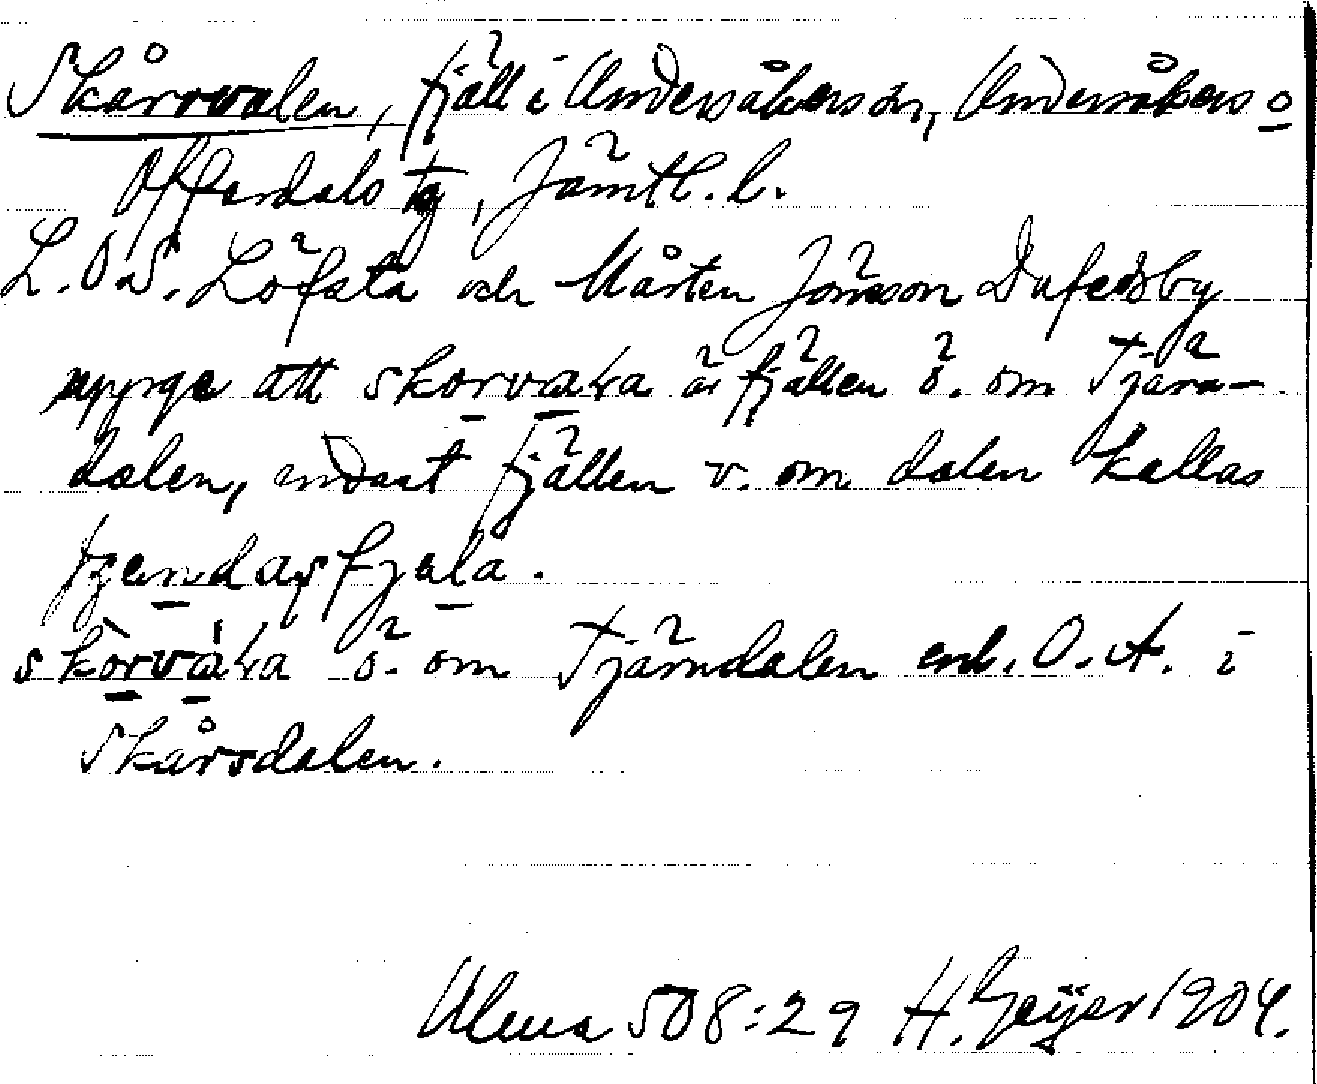 Skårvvalen, fjäll i Undersåkers sn, Undersåkers o
Offerdals tg, Jämtl. l.
L.O.S. Löfsta och Mårten Jönsson Dufedsby
uppge att skorvaɫa är fjällen ö. om Tjärn-
dalen, endast fjällen v. om dalen kallas
.
skòrváɫa ö. om Tjärndalen enl. O. A. i
Skårsdalen.
Ulma 508:29 H. Geijer 1904.